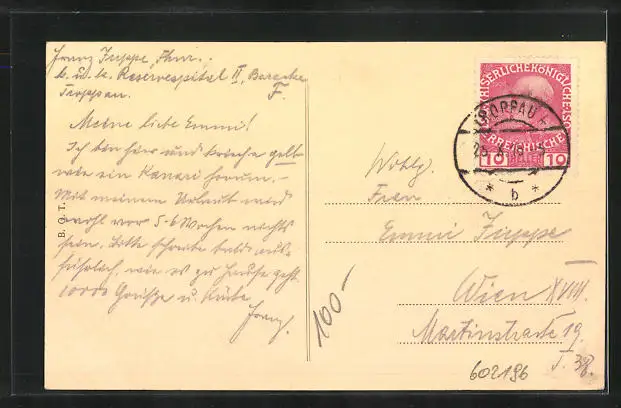 Franz Zuppe, Fhnr.
k. u. k. Reservespital II, Baracke
Troppau. F.
Meine liebe Emmi!
Ich bin hier und krieche gelb
wie ein Kanari herum. –
Mit meinem Urlaub wird
wohl vor 5-6 Wochen nichts
sein. Bitte schreibe bald aus-
führlich, wie es zu Hause geht.
10000 Grüße u. Küsse
Franz.
B. O. T.
100-
KAISERLICHEKÖNIGLICHE
ÖSTERREICHISCHE
10 HELLER 10
TROPPAU
* b *
Wohlg.
Frau
Emmi Zuppe
Wien XVIII.
Martinstraße 19
602196